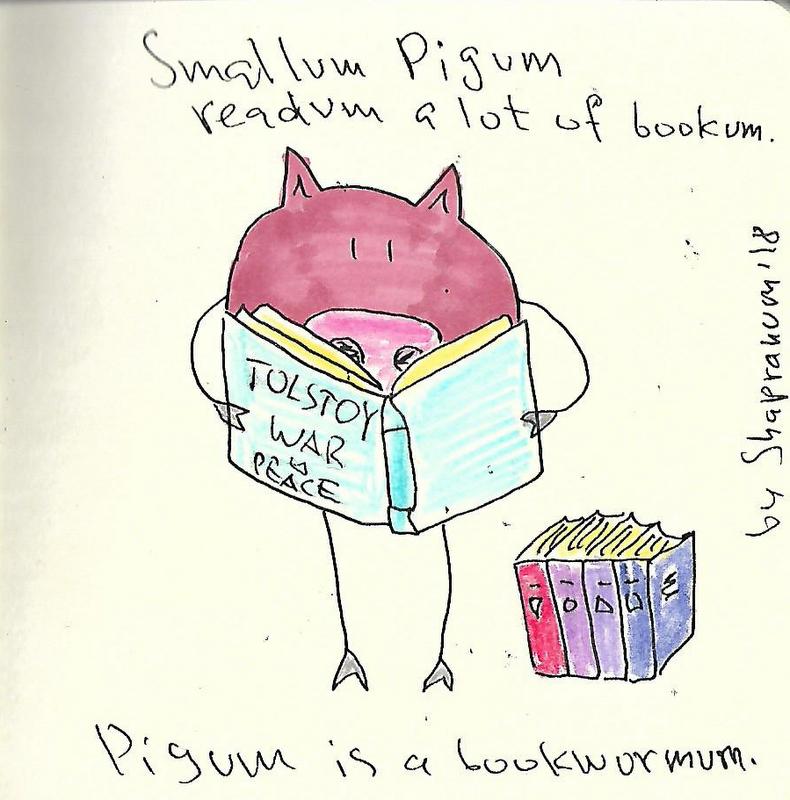 Smallum Pigum
readum a lot of bookum.
TOLSTOY
WAR
и
PEACE
by Shapranum '18
Pigum is a bookwormum.